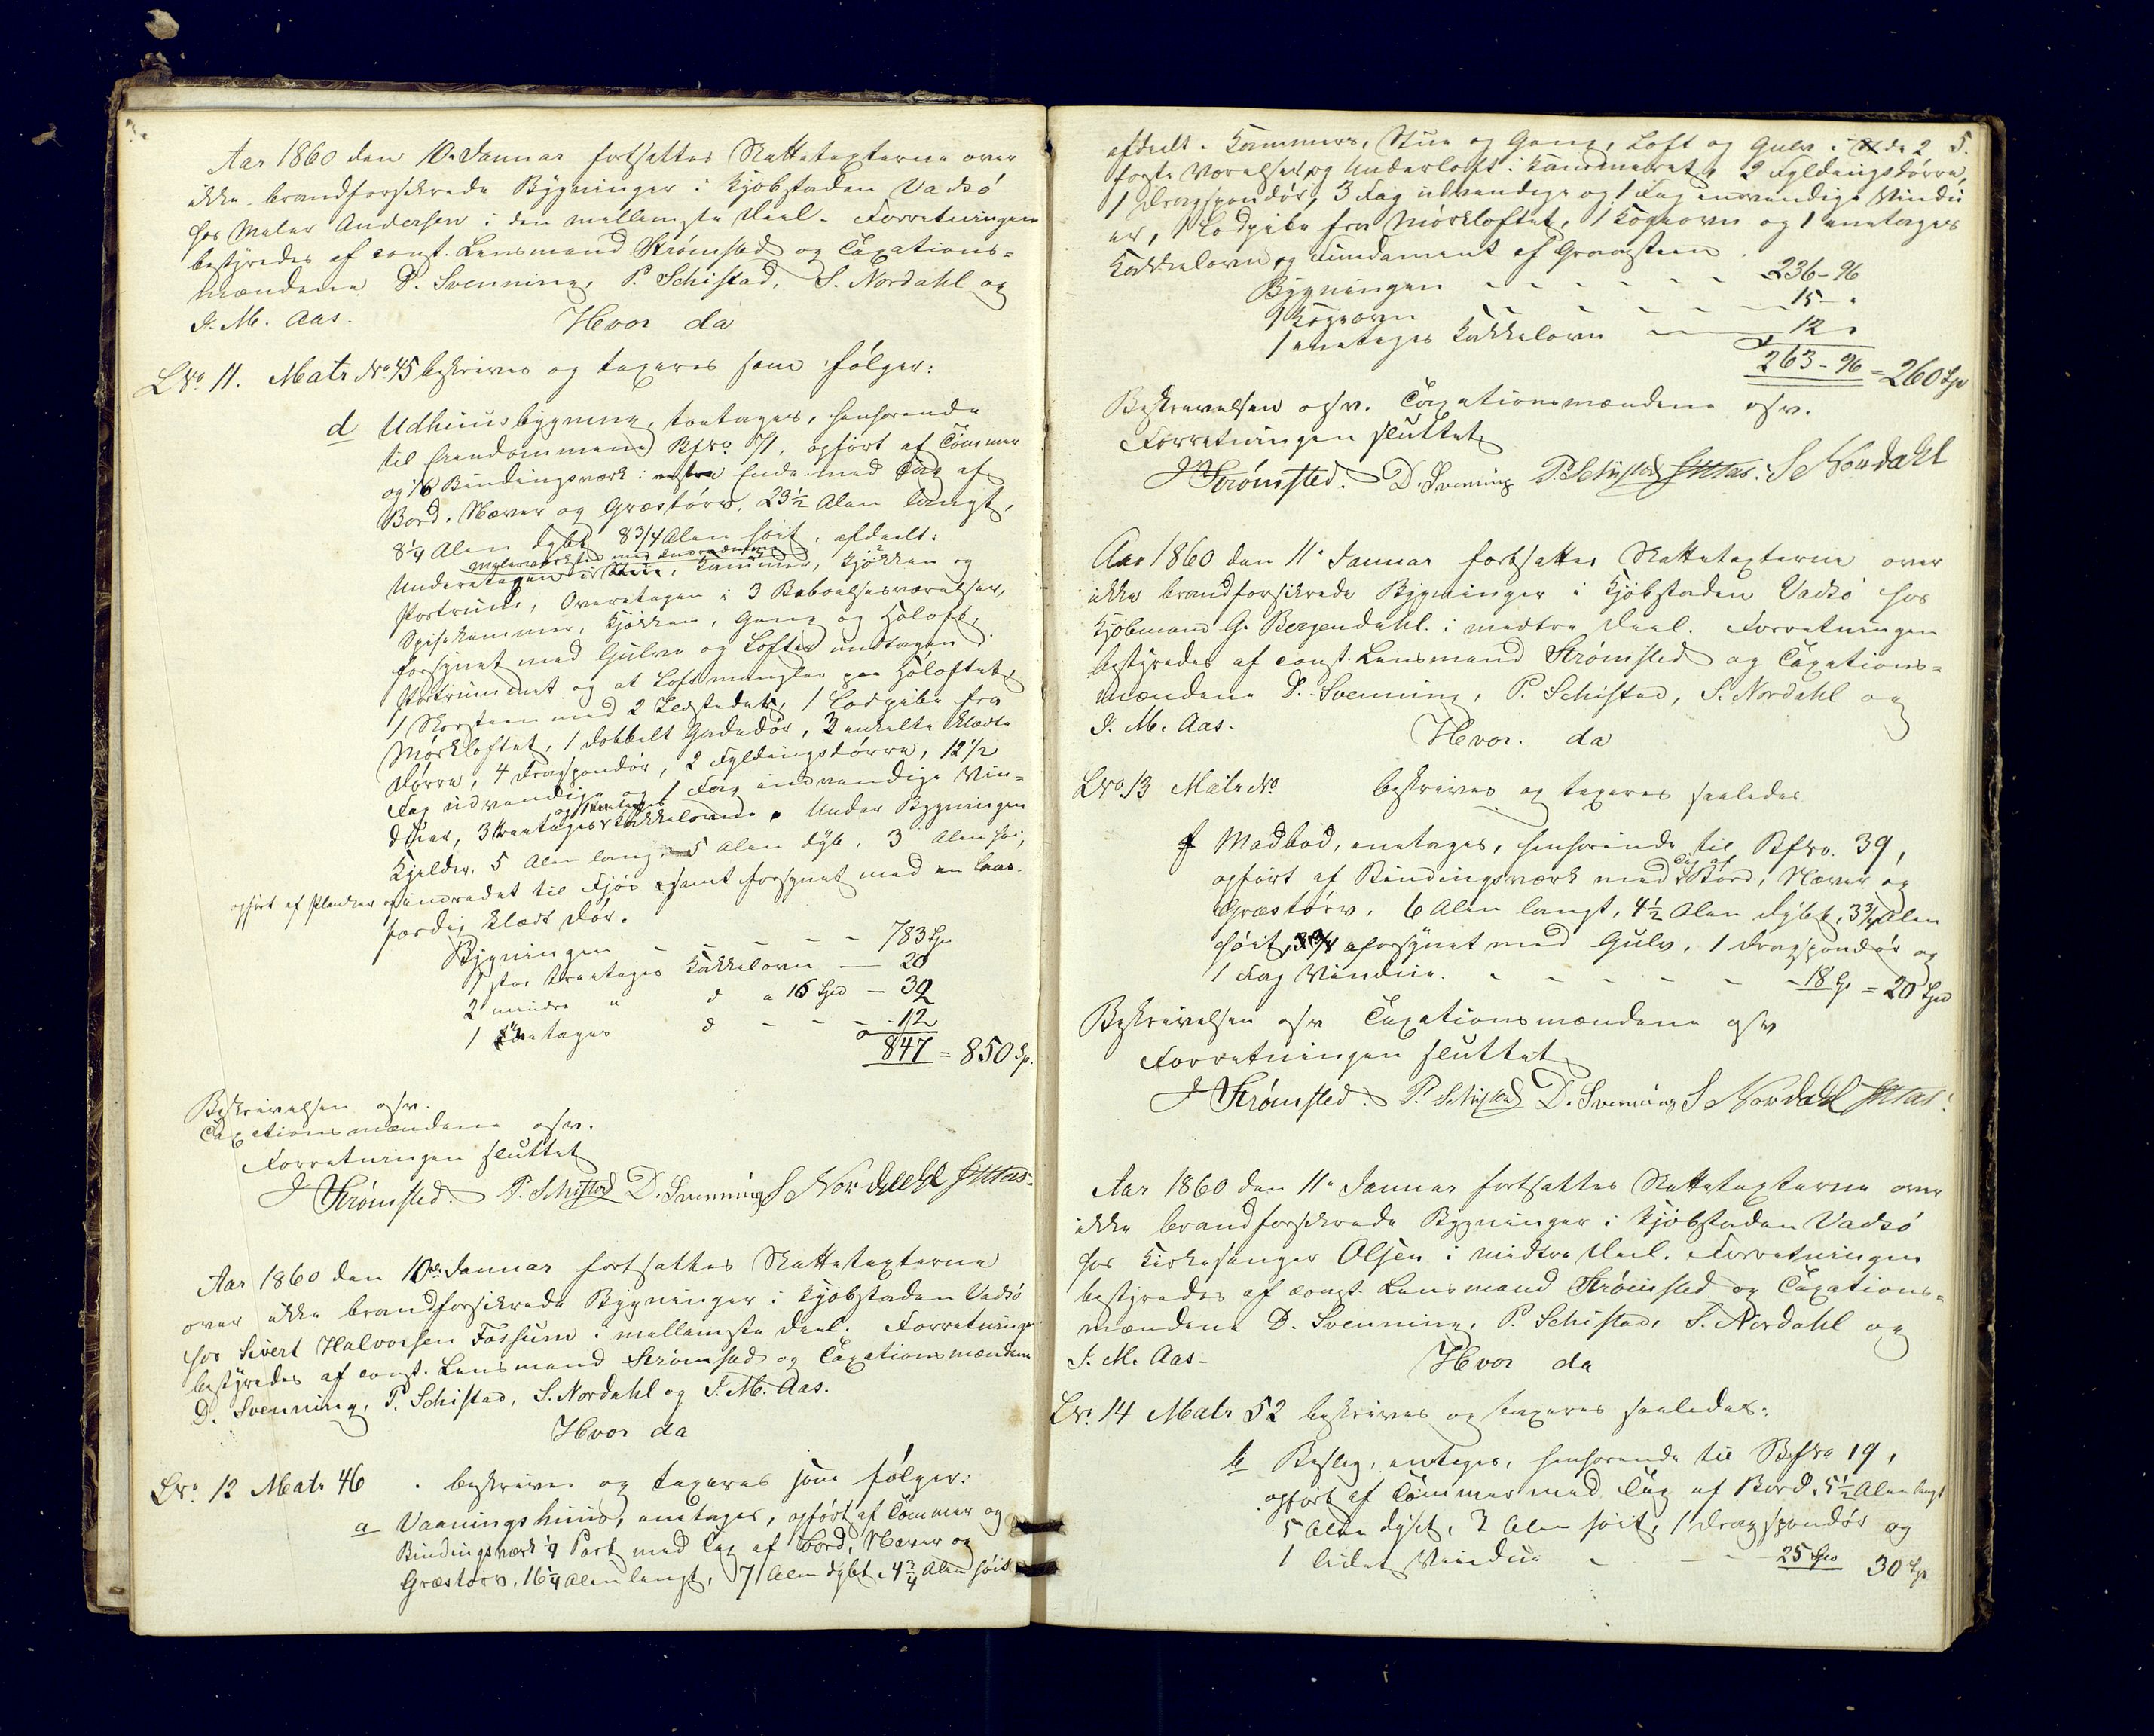 Aar 1860 den 10. Januar fortsattes Skattetaxterne over
ikke brandforsikrede Bygninger i Kjøbstaden Vadsø
hos Maler Andersen i den mellemste Deel. Forretningen
bestyredes af const. Lensmand Strømsted og Taxations-
mændene D. Svenning, P. Schistad, S. Nordahl og
J. M. Aas.
Hvor da
LNo. 11. Matr No 45 beskrives og taxeres som følger:
d Udhuusbygning, toetages, henhørende
til Eiendommens Bf No. 51, opført af Tømmer
og Bindingsværk i Ende med Tag af
Bord, Næver og Græstørv, 23½ Alen langt,
8¼ Alen dybt, 8¾ Alen høit, afdeelt:
Malerværksted med
Underetagen i Stue, Kammer, Kjøkken og
Portrum, Overetagen i 3 Beboelsesværelser,
Spisekammer, Kjøkken, Gang og Høloft,
forsynet med Gulve og Lofter undtagen i
Portrummet og at Loft mangler paa Høloftet,
1 Skorsteen med 2 Ildsteder, 1 Lodpibe fra
Mørkloftet, 1 dobbelt Gadedør, 3 enkelte klædte
Dørre, 4 Fragspondør, 2 Fyldingsdørre, 12½
Fag udvendige og 1 Fag indvendige Vin-
og 1 eenetages
duer, 3 toeetages Kakkelovne. Under Bygningen
Kjelder, 5 Alen lang, 5 Alen dyb, 3 Alen høi,
opført af Planker og indredet til Fjøs samt forsynet med en laas-
færdig klædt Dør.
Bygningen - - - - - 783 Spd
1 stor toeetages Kakkelovn - 20
2 mindre " d a 16 Spd - 32
1 eenetages d - - - 12
847 = 850 Sp.
Beskrivelsen osv.
Taxationsmændene osv.
Forretningen sluttet
J Strømsted. P. Schistad D. Svenning S Nordahl JMAas.
Aar 1860 den 10de Januar fortsattes Skattetaxterne
over ikke brandforsikrede Bygninger i Kjøbstaden Vadsø
hos Sivert Halvorsen Fossum i mellemste Deel. Forretningen
bestyredes af const. Lensmand Strømsted og Taxationsmændene
D. Svenning, P. Schistad, S. Nordahl og J. M. Aas.
Hvor da
LNo. 12 Matr 46 . beskrives og taxeres som følger:
a Vaaningshuus, eenetages, opført af Tømmer og
Bindingsværk ¼ Part med Tag af Bord, Næver og
Græstørv, 16¼ Alen langt, 7 Alen dybt, 4¾ Alen høit
5.
afdeelt i Kammers, Stue og Gang, Loft og Gulv i de 2
første Værelser og Underloft i Kammeret, 2 Fyldingsdørre,
1 Fragspondør, 3 Fag udvendige og 1 Fag indvendige Vindu
er, 1 Lodpibe fra Mørkloftet, 1 Kogeovn og 1 eenetages
Kakkelovn og Fundament af Graasteen.
Bygningen - - - - - 236-96
1 Kogeovn - - - - 15-"
1 eenetages Kakkelovn - - 12 "
263-96 = 260 Spd
Beskrivelsen osv. Taxationsmændene osv.
Forretningen sluttet
J Strømsted. D. Svenning P. Schistad JMAas. S Nordahl
Aar 1860 den 11. Januar fortsattes Skattetaxterne over
ikke brandforsikrede Bygninger i Kjøbstaden Vadsø hos
Kjøbmand G. Bergendahl i nedtre Deel. Forretningen
bestyredes af const. Lensmand Strømsted og Taxations-
mændene D. Svenning, P. Schistad, S. Nordahl og
J. M. Aas.
Hvor. da
LNo. 13 Matr No beskrives og taxeres saaledes
f Madbod, eenetages, henhørende til Bf No. 39,
Tag af
opført af Bindingsværk med Bord, Næver og
Græstørv, 6 Alen langt, 4½ Alen dybt, 3¾ Alen
høit, forsynet med Gulv, 1 Fragspondør og
1 Fag Vindue. - - - - - 18 Sp = 20 Spd
Beskrivelsen osv Taxationsmændene osv
Forretningen sluttet
J Strømsted. P. Schistad D. Svenning S Nordahl JMAas.
Aar 1860 den 11. Januar fortsattes Skattetaxterne over
ikke brandforsikrede Bygninger i Kjøbstaden Vadsø
hos Kirkesanger Olsen i midtre Deel. Forretningen
bestyredes af const. Lensmand Strømsted og Taxations-
mændene D. Svenning, P. Schistad, S. Nordahl og
J. M. Aas.
Hvor da
LNo. 14 Matr 52 beskrives og taxeres saaledes:
b Bislag, eenetages, henhørende til Bf No 19,
opført af Tømmer med Tag af Bord, 5½ Alen langt
5 Alen dybt, 3 Alen høit, 1 Fragspondør og
1 lidet Vindue - - - 25 Spd 30 Sp